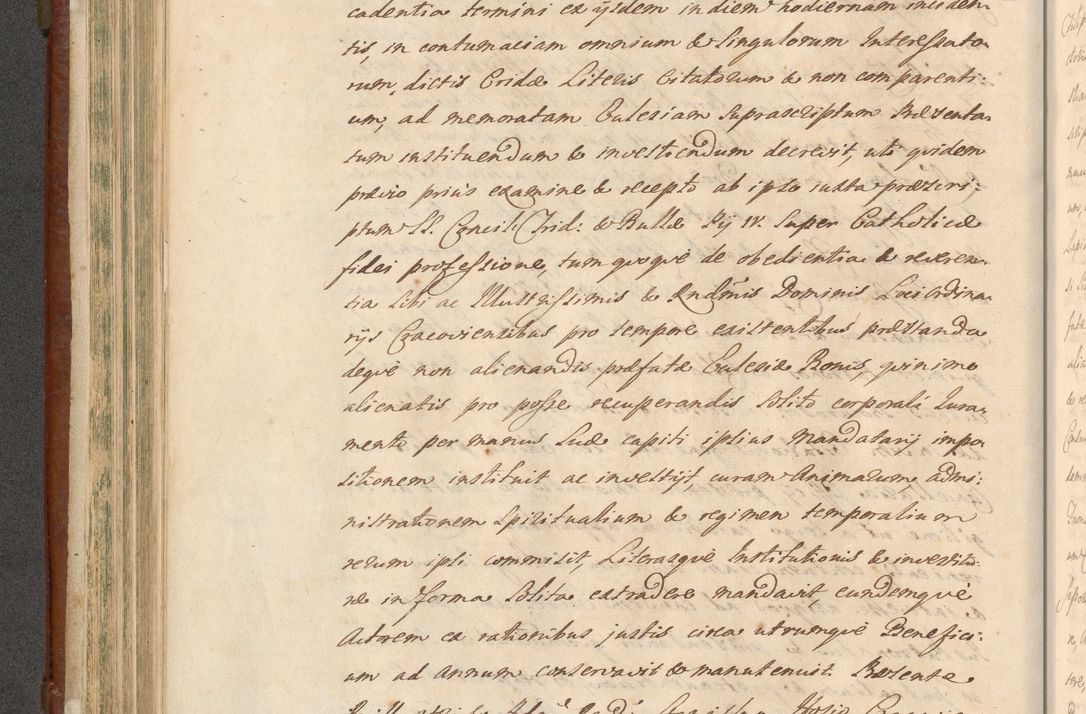 cadentia termini ex ijsdem in diem hodiernam inciden-
tis, in contumaciam omnium & singulorum Interessato-
rum, dictis Cridæ Literis Citatorum & non comparenti:
um, ad memoratam Ecclesiam suprascriptum Præsenta-
tum instituendum & investiendum decrevit, uti quidem
prævio prius examine & recepto ab ipso iuxta præscri-
ptum SS. Concilij Trid: & Bullæ Pij IV. super Catholicæ
fidei professione, tum quoque de obedientia & reveren-
tia sibi ac Illustrissimis & Rndmis Dominis Loci Ordina-
rijs Cracoviensibus pro tempore existentibus præstanda
deque non alienandis præfatæ Ecclesiæ Bonis, quinimo
alienatis pro posse recuperandis solito corporali Jura-
mento per manus suæ capiti ipsius Mandatarij impo-
sitionem instituit ac investijt, curam Animarum admi-
nistrationem Spiritualium & regimen temporalium
rerum ipsi commisit, Literasque Institutionis & investitu-
ræ in forma solita extradere mandavit eundemque
Actorem ex rationibus justis circa utrumque Benefici:
um ad annum conservavit & manutenuit. Præsente